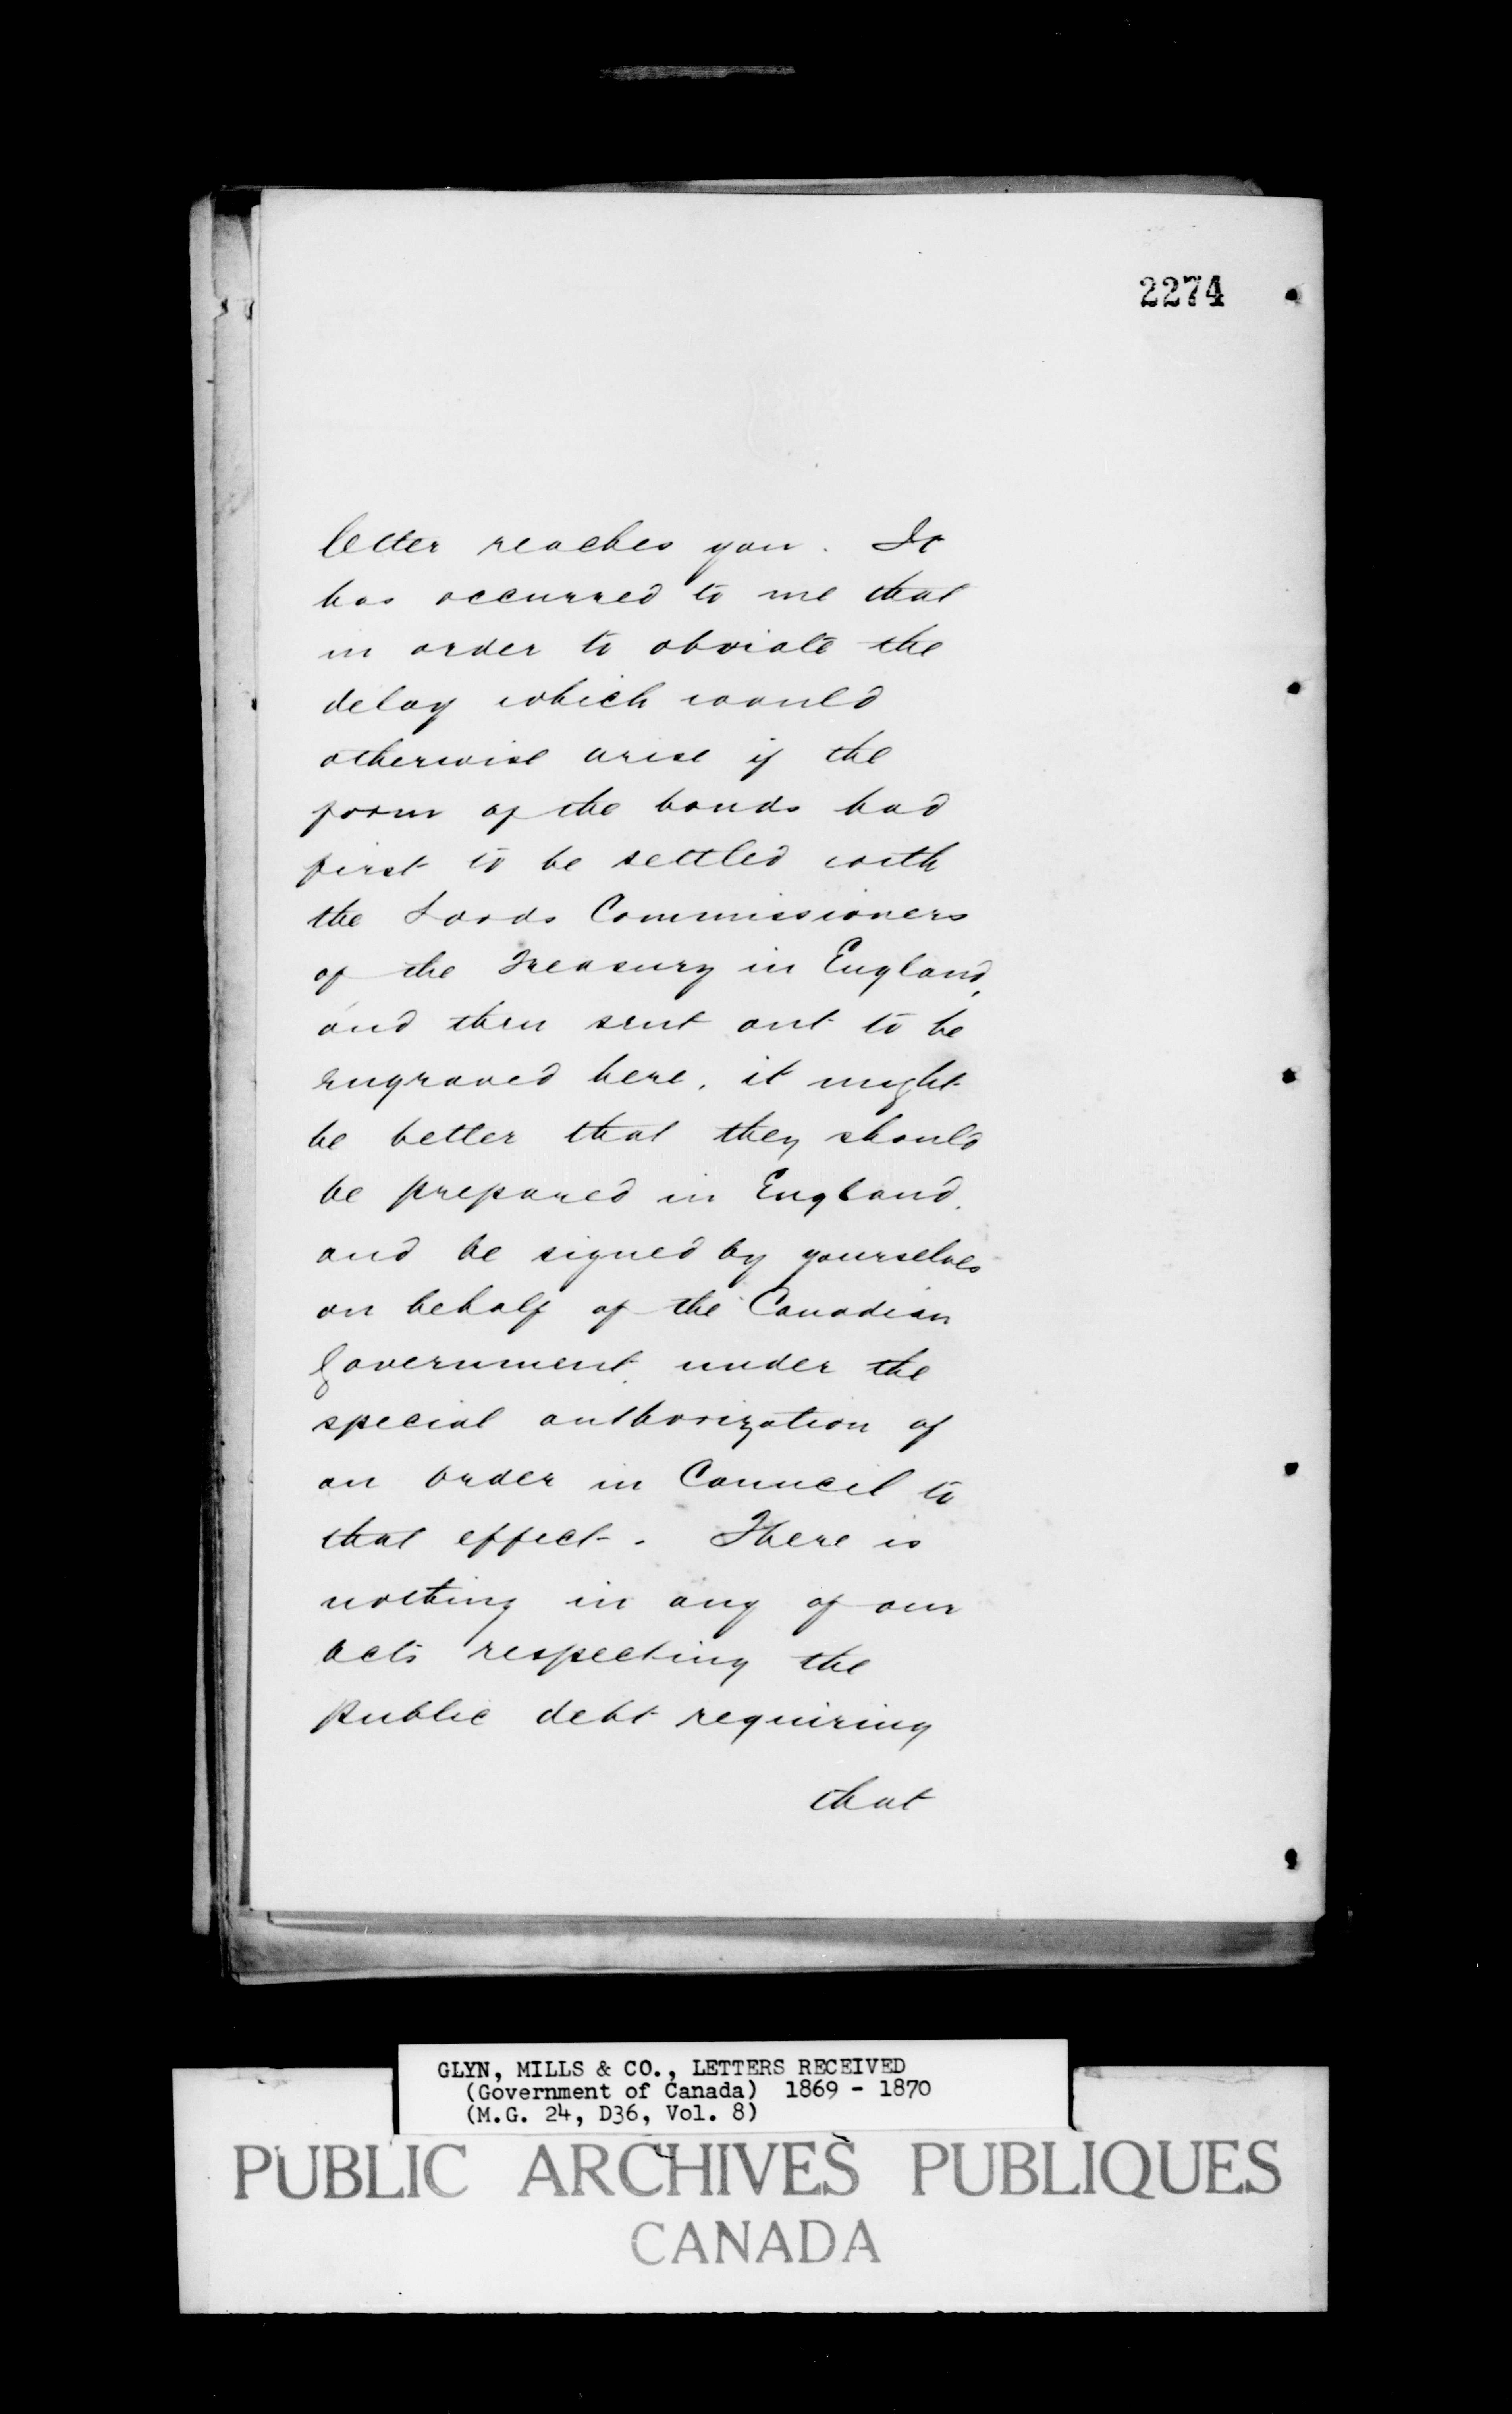 2274
letter reaches you. It
has occurred to me that
in order to obviate the
delay which would
otherwise arise if the
form of the bonds had
first to be settled with
the Lords Commissioners
of the Treasury in England,
and then sent out to be
engraved here, it might
be better that they should
be prepared in England,
and be signed by yourselves
on behalf of the Canadian
Government, under the
special authorization of
an order in Council to
that effect. There is
nothing in any of our
acts respecting the
public debt requiring
that
GLYN, MILLS & CO., LETTERS RECEIVED
(Government of Canada) 1869 - 1870
(M.G. 24, D36, Vol. 8)
PUBLIC ARCHIVES PUBLIQUES
CANADA